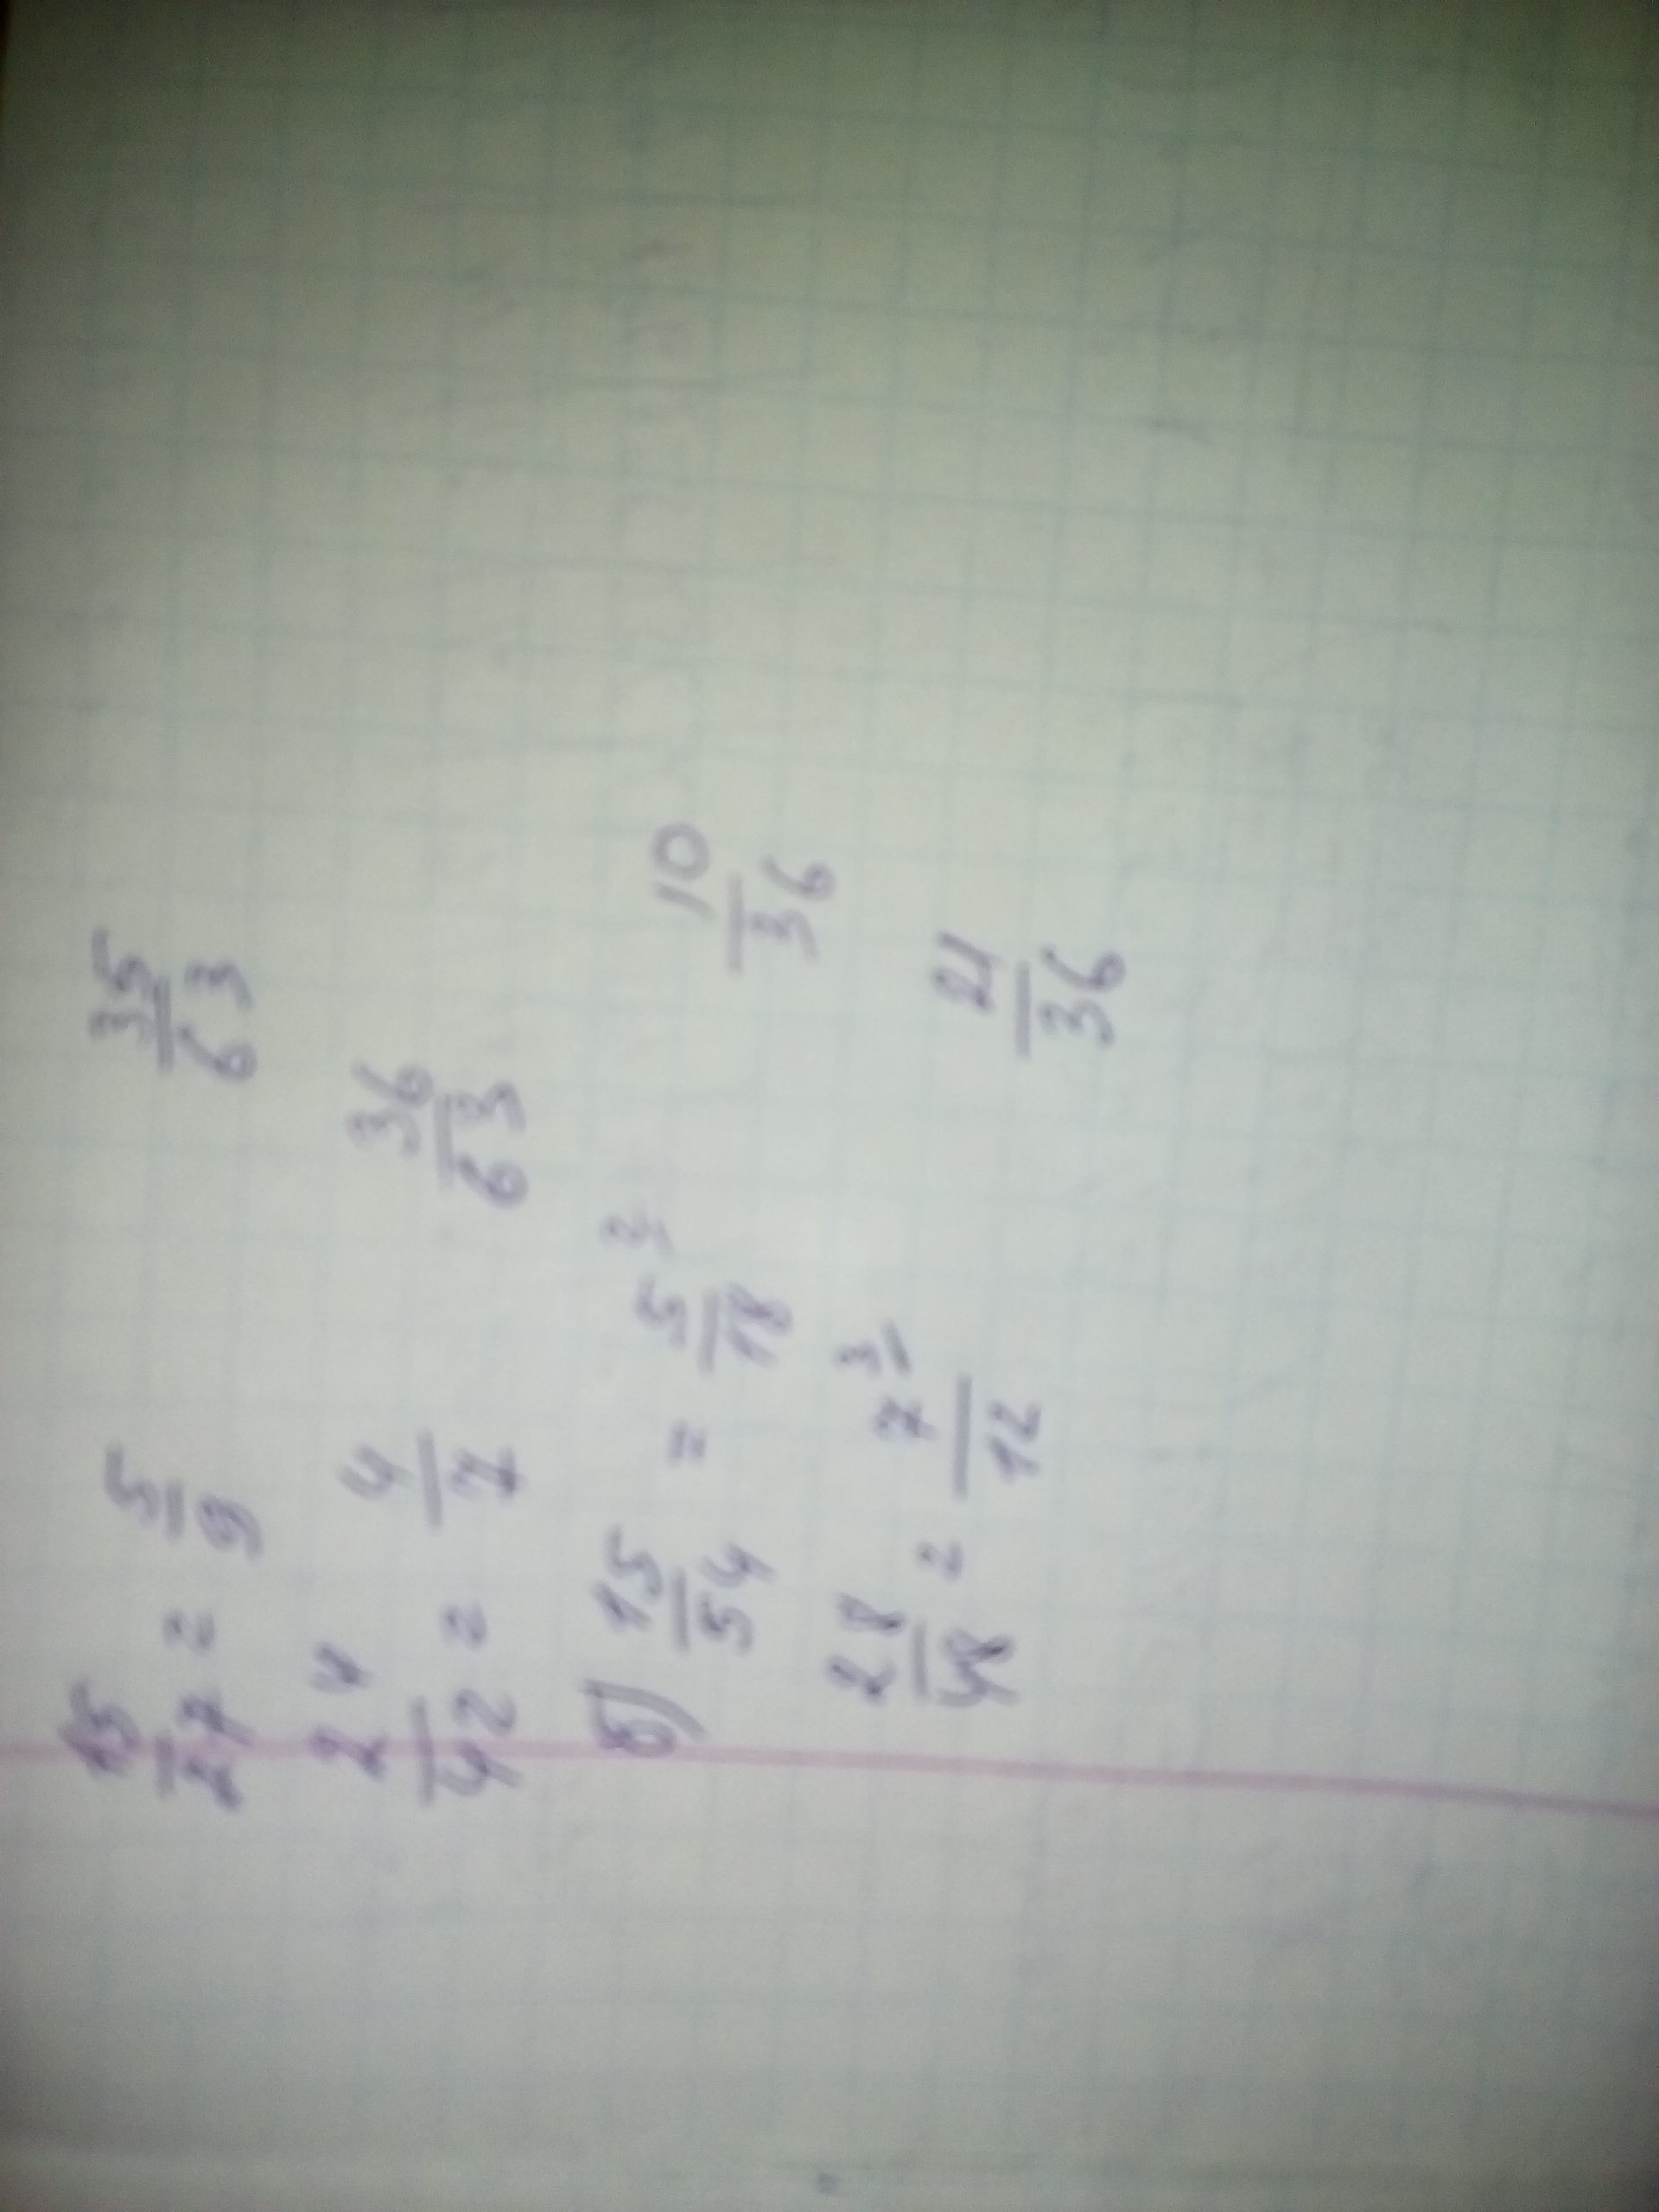 15/27 = 5/9 35/63
24/42 = 4/7 36/63
б) 15/54 = 5/18 10/36
28/48 = 7/12 3 21/36